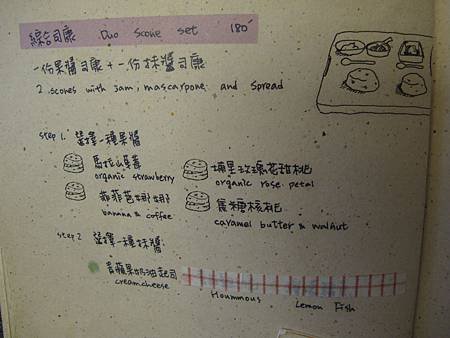 綜合司康 Duo scone set 180
一份果醬司康 + 一份抹醬司康
2 scones with jam, mascarpone and spread
step 1. 選擇一種果醬
馬拉山草莓
organic strawberry
埔里玫瑰花甜桃
organic rose petal
咖菲芭娜娜
banana & coffee
焦糖核桃
caramel butter & walnut
step 2 選擇一種抹醬
青蘋果奶油起司
creamcheese
Hoummous
Lemon Fish